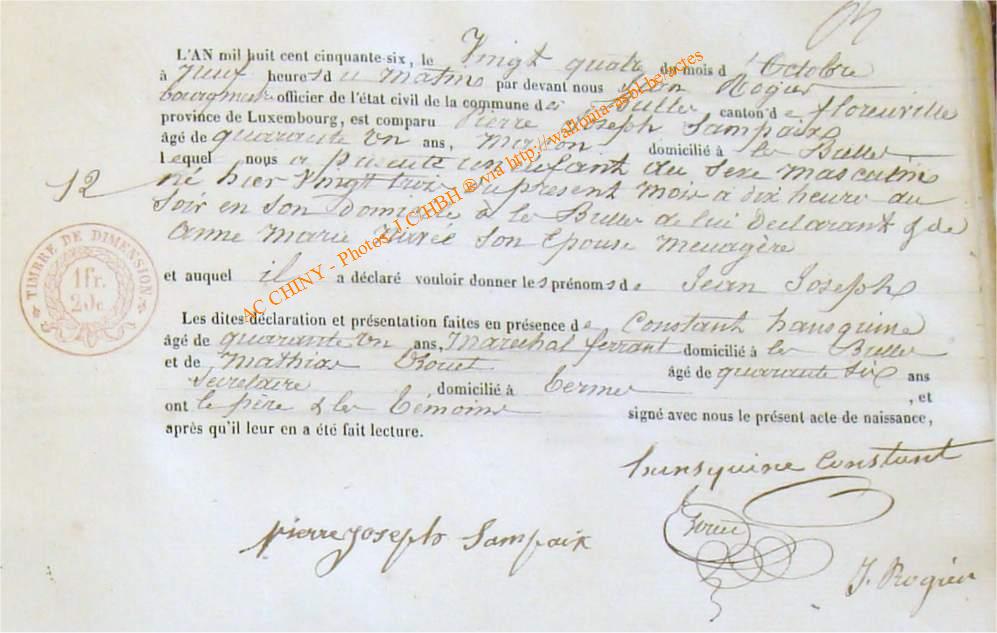 L'AN mil huit cent cinquante-six, le Vingt quatre du mois d'Octobre
à neuf heures du matin par devant nous Jean Rogier
bourgmestre officier de l'état civil de la commune des Bulles canton de florenville
province de Luxembourg, est comparu Pierre Joseph Sampaix
âgé de quarante un ans, Maçon domicilié à les Bulles
lequel nous a présenté un enfant du sexe masculin
12 né hier Vingt trois du présent mois à dix heures du
soir en son domicile à les Bulles de lui Déclarant & de
Anne Marie son épouse menagère
et auquel il a déclaré vouloir donner les prénoms de Jean Joseph
Les dites déclaration et présentation faites en présence de Constant hansquine
âgé de quarante un ans, Maréchal ferrant domicilié à les Bulles
et de Mathias âgé de quarante six ans
Secrétaire domicilié à termes, et
ont le père & les témoins signé avec nous le présent acte de naissance,
après qu'il leur en a été fait lecture.
TIMBRE DE DIMENSION
1fr.
20c
hansquine Constant
pierre joseph Sampaix
J. Rogier
AC CHINY - Photos J.C HBH ® via http://wallonia-asbl.be/actes